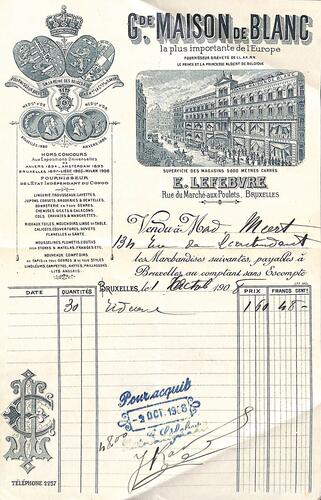 Gde MAISON DE BLANC
la plus importante de l'Europe
FOURNISSEUR BREVETÉ DE LL.AA.RR.
LE PRINCE ET LA PRINCESSE ALBERT DE BELGIQUE
HORS CONCOURS
Aux Expositions Universelles
ANVERS 1894, AMSTERDAM 1895
BRUXELLES 1897, LIÉGE 1905, MILAN 1906
FOURNISSEUR
DE L'ÉTAT INDÉPENDANT DU CONGO
LINGERIE, TROUSSEAUX, LAYETTES,
JUPONS, CORSETS, BRODERIES & DENTELLES,
BONNETERIE EN TOUS GENRES,
CHEMISES, GILETS & CALEÇONS
COLS, CRAVATES & MANCHETTES.
RIDEAUX, TOILES, MOUCHOIRS, LINGE DE TABLE,
CALICOTS, COUVERTURES, DUVETS
FLANELLES.
MOUSSELINES, PLUMETIS, COUTILS
POUR STORES & MATELAS, FRANGES ETC.
NOUVEAU COMPTOIR
DE TAPIS EN TOUS GENRES & DE TOUS STYLES
LINOLEUMS, CARPETTES, NATTES, PAILLASSONS
LITS ANGLAIS
SUPERFICIE DES MAGASINS 5000 MÈTRES CARRÉS
E. LEFEBVRE
Rue du Marché-aux-Poulets, BRUXELLES
Vendu à Mad Meert
134 rue de
les Marchandises suivantes, payables à
Bruxelles au comptant sans Escompte
BRUXELLES, le 1 Octob 1908
DATE QUANTITÉS PRIX FRANCS CENTS
30 1 60 48 -
Pour acquit
- 9 OCT. 1908
4800
TÉLÉPHONE 2257